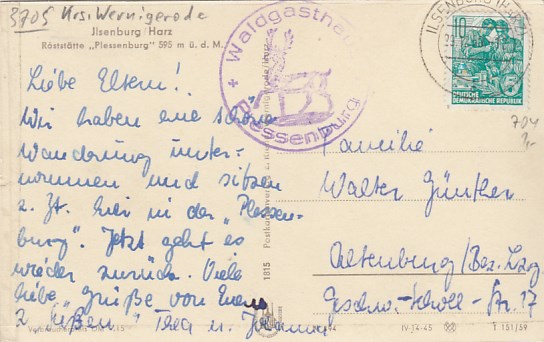 3705 Krs. Wernigerode
Ilsenburg/Harz
Raststätte „Plessenburg" 595 m ü. d. M.
Liebe Eltern!
Wir haben eine schöne
Wanderung unter-
nommen und sitzen
z. Zt. hier in der „Plessen-
burg". Jetzt geht es
wieder zurück. Viele
liebe Grüße von Euren
2 „Süßen" Thea u.
+ Waldgasthaus
Plessenburg
ILSENBURG (HARZ)
10
DEUTSCHE
DEMOKRATISCHE REPUBLIK
704
1,-
Familie
Walter Günther
Altenburg/Bez. Lpzg.
Geschw.-Scholl-Str. 17
1815
IV-14-45
T 151/59